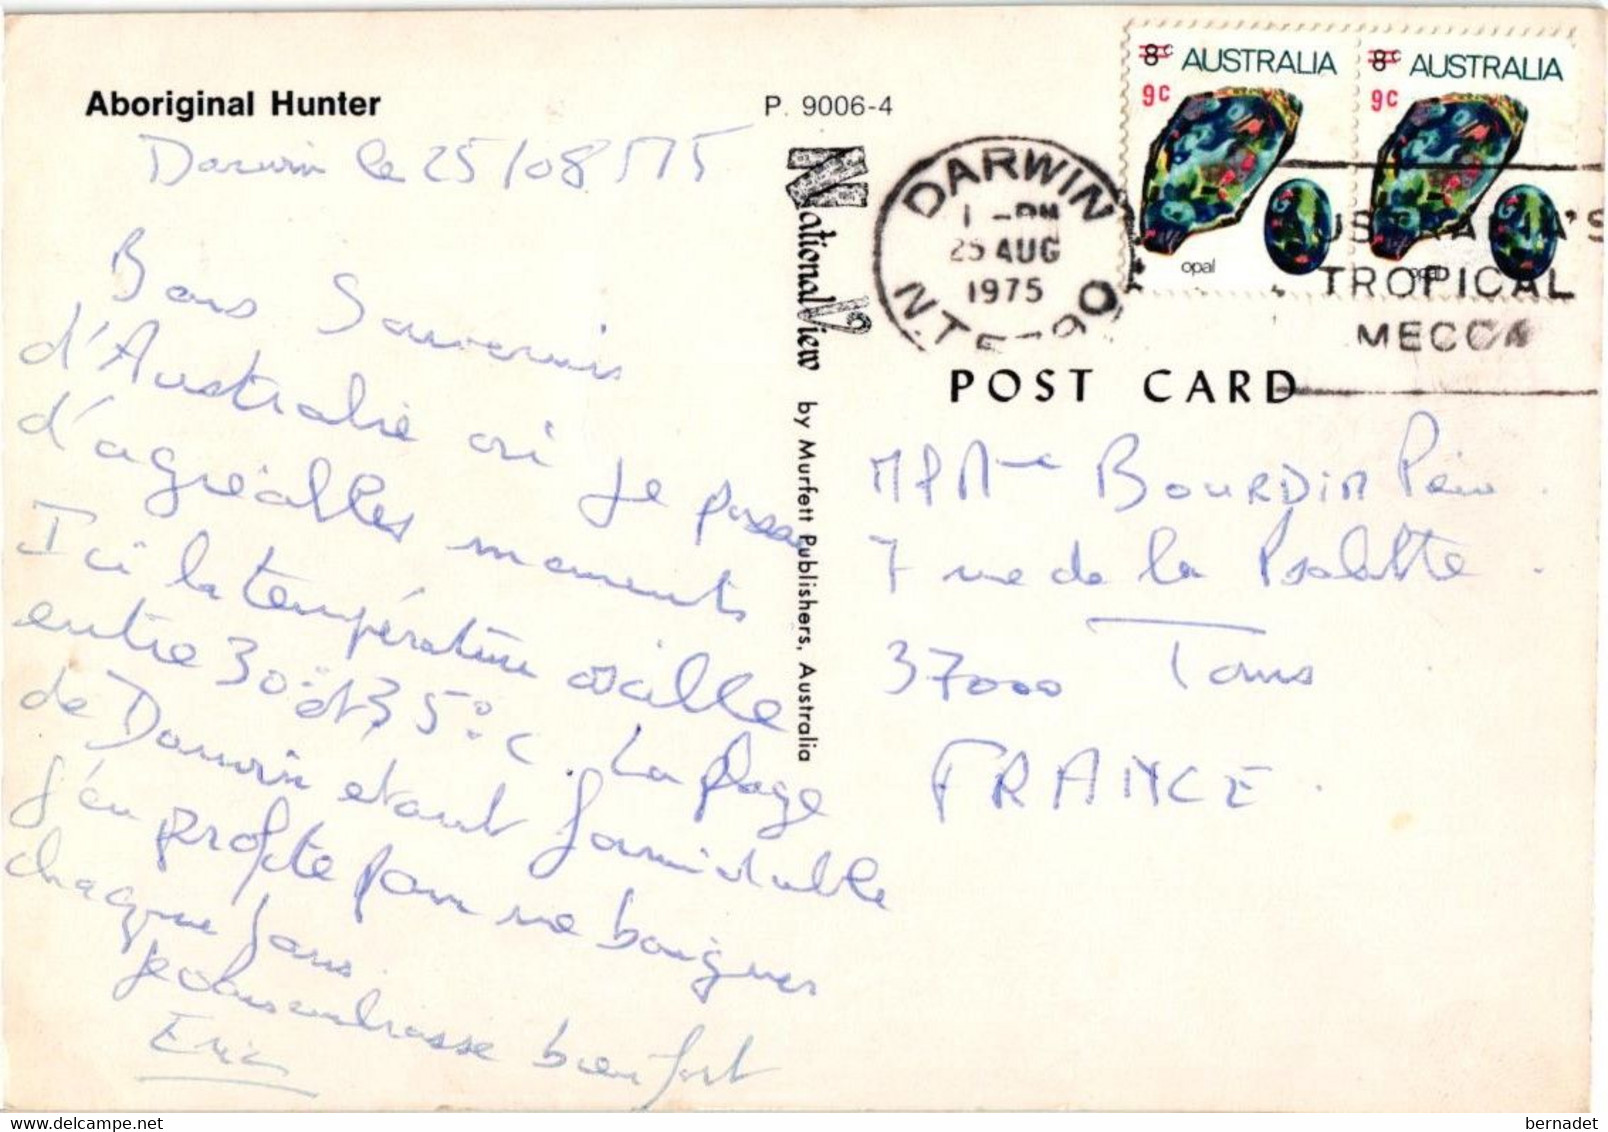 Aboriginal Hunter
P. 9006-4
Darwin le 25/08/75
Bons Souvenirs
d'Australie où je passe
d'agréables moments
Ici la température oscille
entre 30° et 35°C. La plage
de Darwin étant formidable
j'en profite pour me baigner
chaque jours.
Je vous embrasse bien fort
Eric
National View by Murfett Publishers, Australia
8c AUSTRALIA
9c
opal
8c AUSTRALIA
9c
opal
DARWIN
1 -PM
25 AUG
1975
AUSTRALIA'S
TROPICAL
MECCA
POST CARD
BOURDIN
7 rue de la
37000 Tours
FRANCE.
bernadet